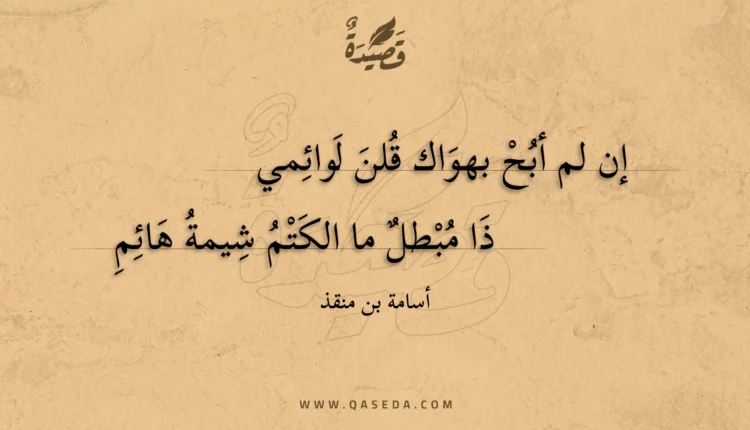 قَصِيْدَةٌ
إن لم أبُحْ بهوَاك قُلنَ لَوائِمي
ذَا مُبْطلٌ ما الكَتْمُ شِيمةُ هَائِمِ
أسامة بن منقذ
WWW.QASEDA.COM